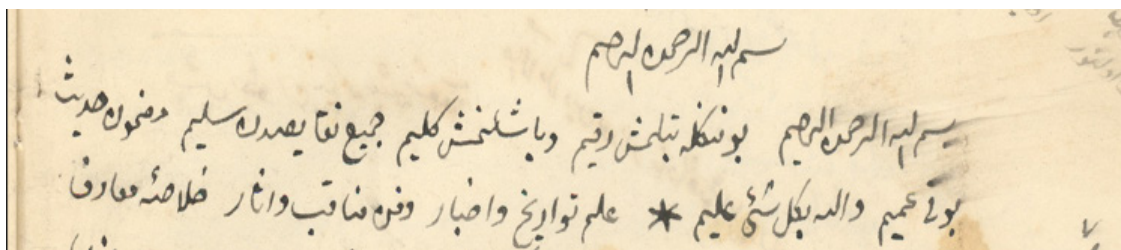 بسم الله الرحمن الرحيم
بسم الله الرحمن الرحيم بونكله يتلمش رقيم وباشلنمش كليم جميع نقايصدن سليم ومضمون حديث
بوى عميم والله بكل شئ عليم * علم تواريخ واخبار وفن مناقب واثار خلاصه معارف